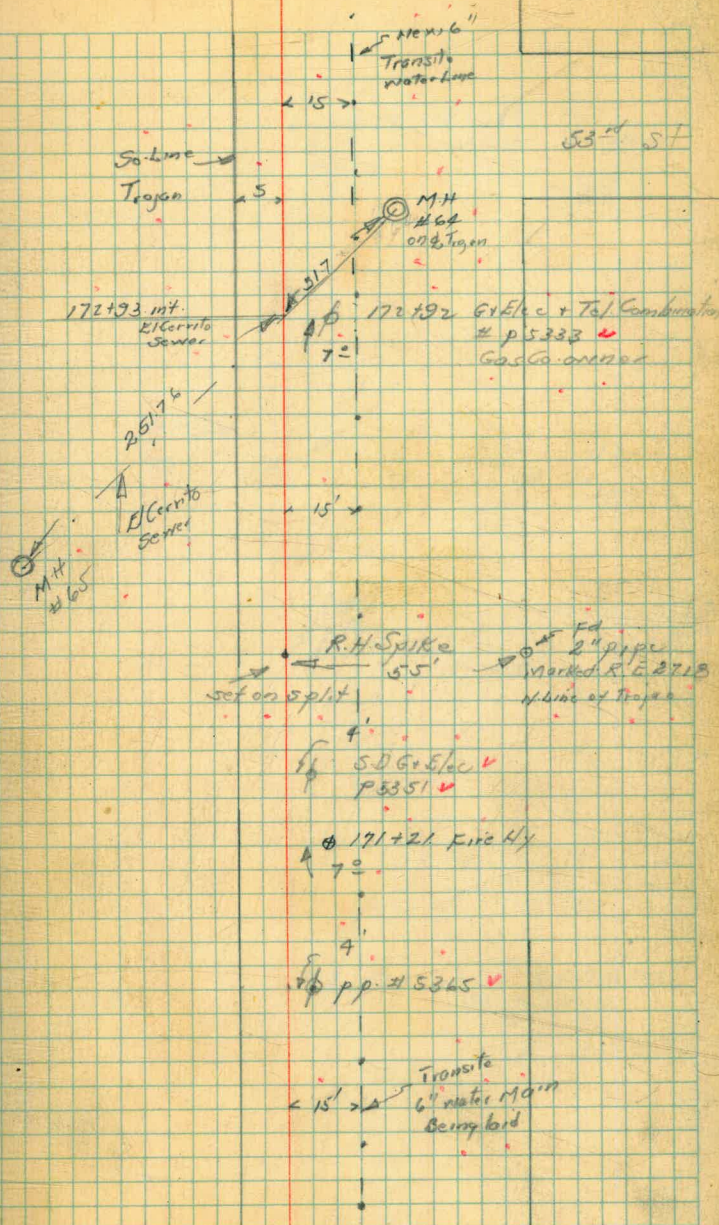 New 6"
Transite
Water Line
15
53rd St
So. Line
Trojan
5
M.H
#64
on ℄ Trojan
51.7
172+93 int.
El Cerrito
Sewer
172+92 G+Elec + Tel. Combination
# P5333
Gas Co. owner
7º
251.76
El Cerrito
Sewer
15'
M.H
#65
R.H. Spike
55'
set on split
Fd
2" pipe
Marked R.E. 2718
N. Line of Trojan
4'
S.D G+Elec
P5351
171+21 Fire Hy
7º
4'
p.p. # 5365
15'
Transite
6" water Main
Being laid